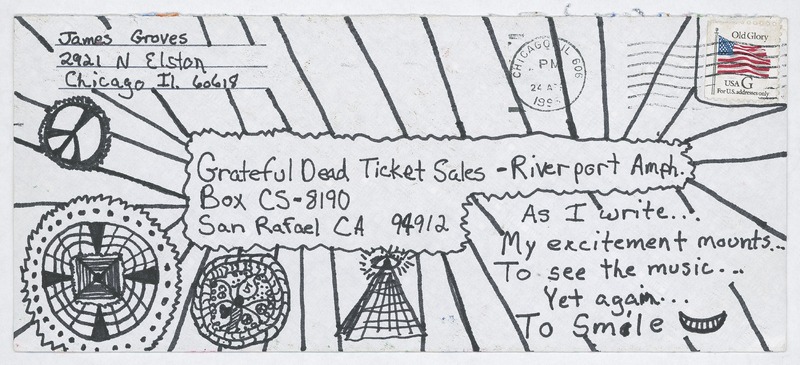 James Groves
2921 N Elston
Chicago Il. 60618
CHICAGO, IL 606
PM
24
Old Glory
USA G
For U.S. addresses only
Grateful Dead Ticket Sales - Riverport Amph.
Box CS-8190
San Rafael CA 94912
As I write...
My excitement mounts...
To see the music...
Yet again...
To Smile